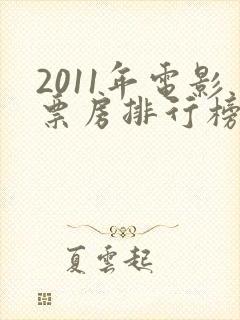 2011年電影
票房排行榜
夏雲起